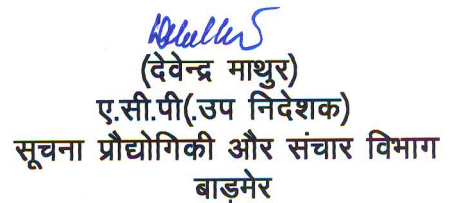 (देवेन्द्र माथुर)
ए.सी.पी(.उप निदेशक)
सूचना प्रौद्योगिकी और संचार विभाग
बाड़मेर